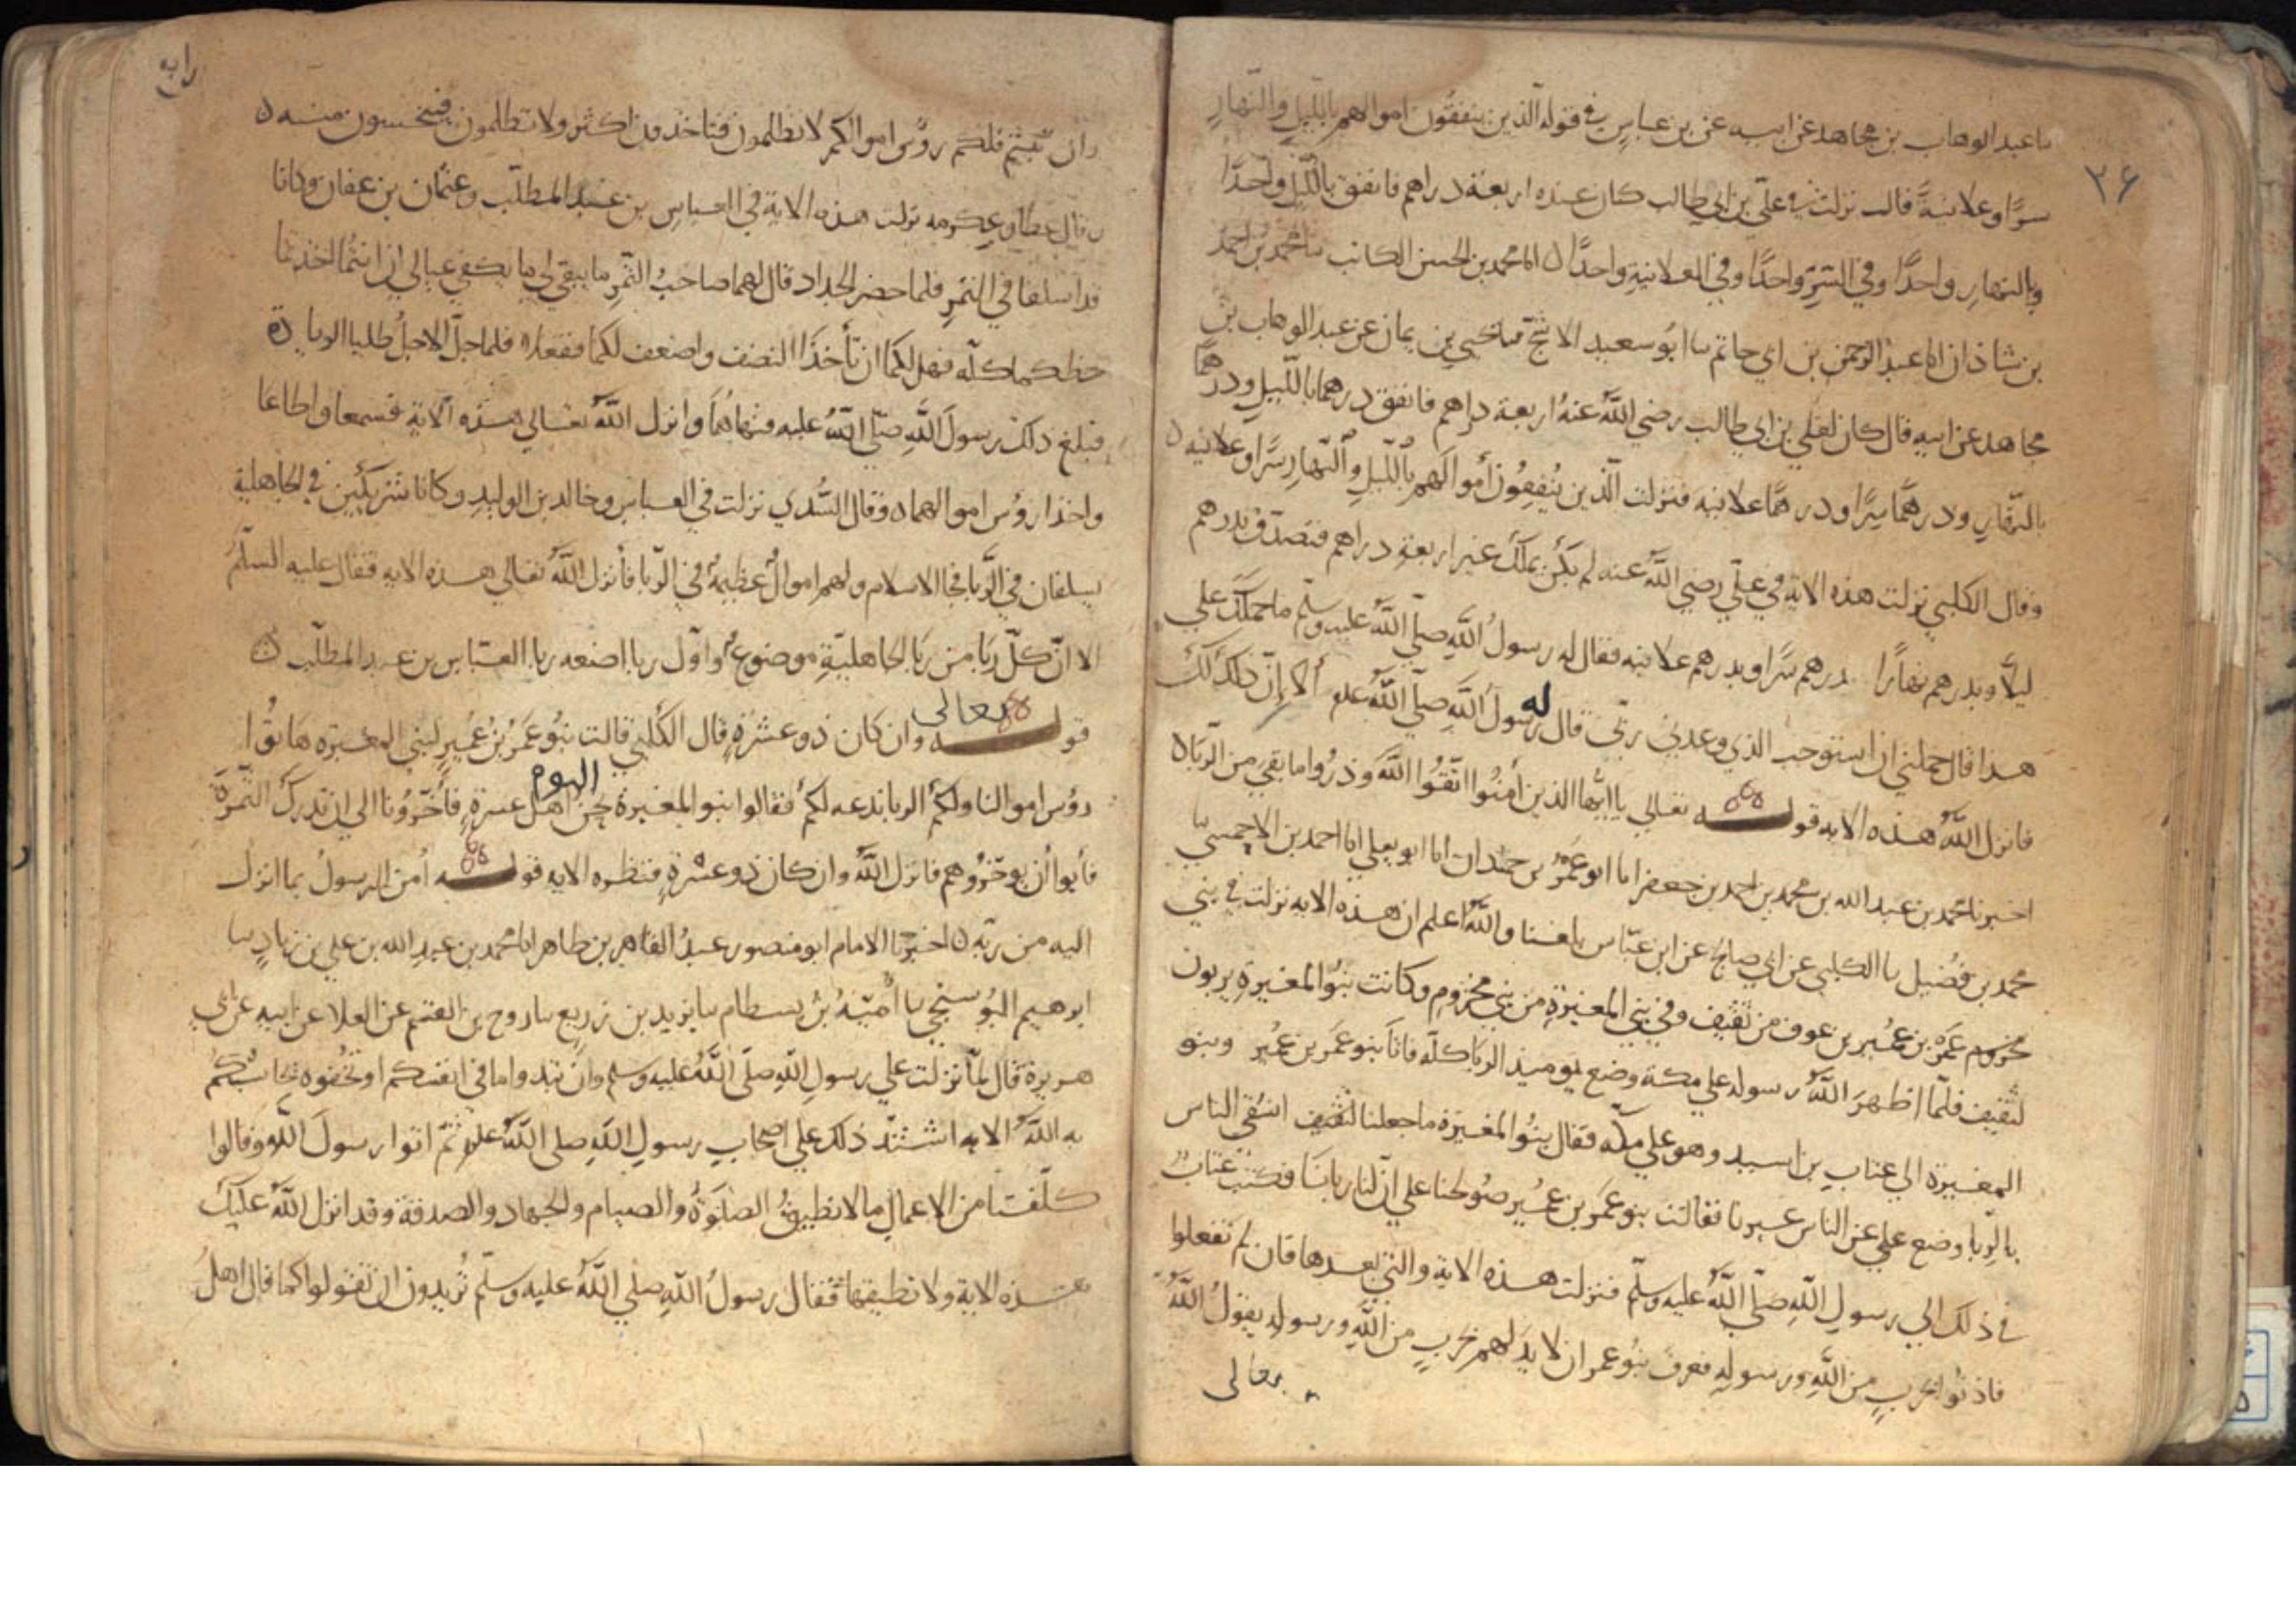 ٣۶
ىا عبد الوهاب بن مجاهد عن ابيه عن بن عباس في قوله الذين ينفقون اموالهم بالليل والنهار
سرًّا وعلانيةً قال نزلت في علي بن ابي طالب كان عنده اربعة دراهم فانفق بالليل واحدًا
وبالنهار واحدًا وفي السّرِّ واحدًا وفي العلانية واحدًا ٥ انا محمد بن الحسن الكاتب ىا محمد بن احمد
بن شاذان انا عبد الرحمن بن ابي حاتم ىا ابو سعيد الاشج ىا يحيى بن يمان عن عبد الوهاب بن
مجاهد عن ابيه قال كان لعلي بن ابي طالب رضي الله عنه اربعة دراهم فانفق درهما بالليل ودرهمًا
بالنهار ودرهمًا سرًّا ودرهمًا علانيه فنزلت الذين ينفقون أموالهم بالليل والنهار سرًّا وعلانيه ٥
وقال الكلبي نزلت هذه الاية في علي رضي الله عنه لم يكن يملك غير اربعة دراهم فتصدق بدرهم
ليلًا وبدرهم نهارًا بدرهم سرًّا وبدرهم علانيه فقال له رسول الله صلى الله عليه وسلم ما حملك على
هذا قال حملني ان استوجب الذي وعدني ربّي قال له رسول الله صلى الله علم ألا إنّ ذلك لك
فانزل الله هذه الايه قوله تعالي يا ايها الذين أمنوا اتقوا الله وذروا ما بقي من الربا ٥
اخبرنا محمد بن عبد الله بن محمد بن احمد بن جعفر انا ابو عمرو بن حمدان انا ابو يعلي انا احمد بن الاحمسي
محمد بن فضيل ىا الكلبي عن ابي صالح عن ابن عباس بلغنا والله اعلم ان هذه الايه نزلت في بني
مخزوم عمرو بن عمير بن عوف من ثقيف وفي بني المغيرة من بني مخزوم وكانت بنوا المغيرة يربون
لثقيف فلما اظهر الله رسوله علي مكة وضع يوميذ الربا كله فاتا بنو عمرو بن عمير وبنو
المغيرة الي عتاب بن اسيد وهو علي مكه فقال بنوا المغيرة ما جعلنا لثقيف اشقي الناس
بالربا وضع علي عن الناس غيرنا فقالت بنو عمرو بن عمير صولحنا علي ان لنا ربانا فكتب عتاب
في ذلك الي رسول الله صلى الله عليه وسلم فنزلت هذه الاية والتي بعدها فان لم تفعلوا
فاذنوا بحرب من الله ورسوله فعرف بنو عمرو ان لا يد لهم بحرب من الله ورسوله يقول الله
تعالى
وان تبتم فلكم رؤس اموالكم لا تظلمون فتاخذون اكثر ولا تظلمون فتبخسون منه ٥
وقال عطا وعكرمه نزلت هذه الاية في العباس بن عبد المطلب وعثمان بن عفان وكانا
قد اسلفا في التمر فلما حضر الجداد قال لهما صاحب التمر ما يبقي لي ما يكفي عيالي ان انتما اخذتما
حظكما كلّه فهل لكما ان تأخذا النصف واضعف لكما ففعلا فلما حل الاجل طلبا الزيادة
فبلغ ذلك رسول الله صلى الله عليه فنهاهما وانزل الله تعالي هذه الاية فسمعا واطاعا
واخذا رؤس اموالهما ٥ وقال السدي نزلت في العباس وخالد بن الوليد وكانا شريكين في الجاهلية
يسلفان في الربا فجا الاسلام ولهم اموال عظيمة في الربا فأنزل الله تعالي هذه الايه فقال عليه السلم
الا ان كل ربا من ربا الجاهلية موضوع واول ربا اضعه ربا العباس بن عبد المطلب ٥
قوله تعالى وان كان ذو عسرة قال الكلبي قالت بنو عمرو بن عمير لبني المغيره هاتوا
رؤس اموالنا ولكم الربا ندعه لكم فقالوا بنو المغيرة نحن اليوم اهل عسرة فأخرونا الي ان تدرك الثمرة
فأبوا أن يوخروهم فانزل الله وان كان ذو عسرة فنظره الايه قوله أمن الرسول بما انزل
اليه من ربه ٥ اخبرنا الامام ابو منصور عبد القاهر بن طاهر انا محمد بن عبد الله بن علي بن زياد ىا
ابرهيم البوسنجي ىا أمية بن بسطام ىا يزيد بن زريع ىا روح بن القسم عن العلا عن ابيه عن ابي
هريرة قال لما نزلت علي رسول الله صلى الله عليه وسلم وان تبدوا ما في انفسكم او تخفوه يحاسبكم
به الله الايه اشتد ذلك علي اصحاب رسول الله صلى الله علم ثم اتوا رسول الله وقالوا
كلفتنا من الاعمال ما لا نطيق الصلوة والصيام والجهاد والصدقة وقد انزل الله عليك
هذه الاية ولا نطيقها فقال رسول الله صلي الله عليه وسلم تريدون ان تقولوا كما قال اهل